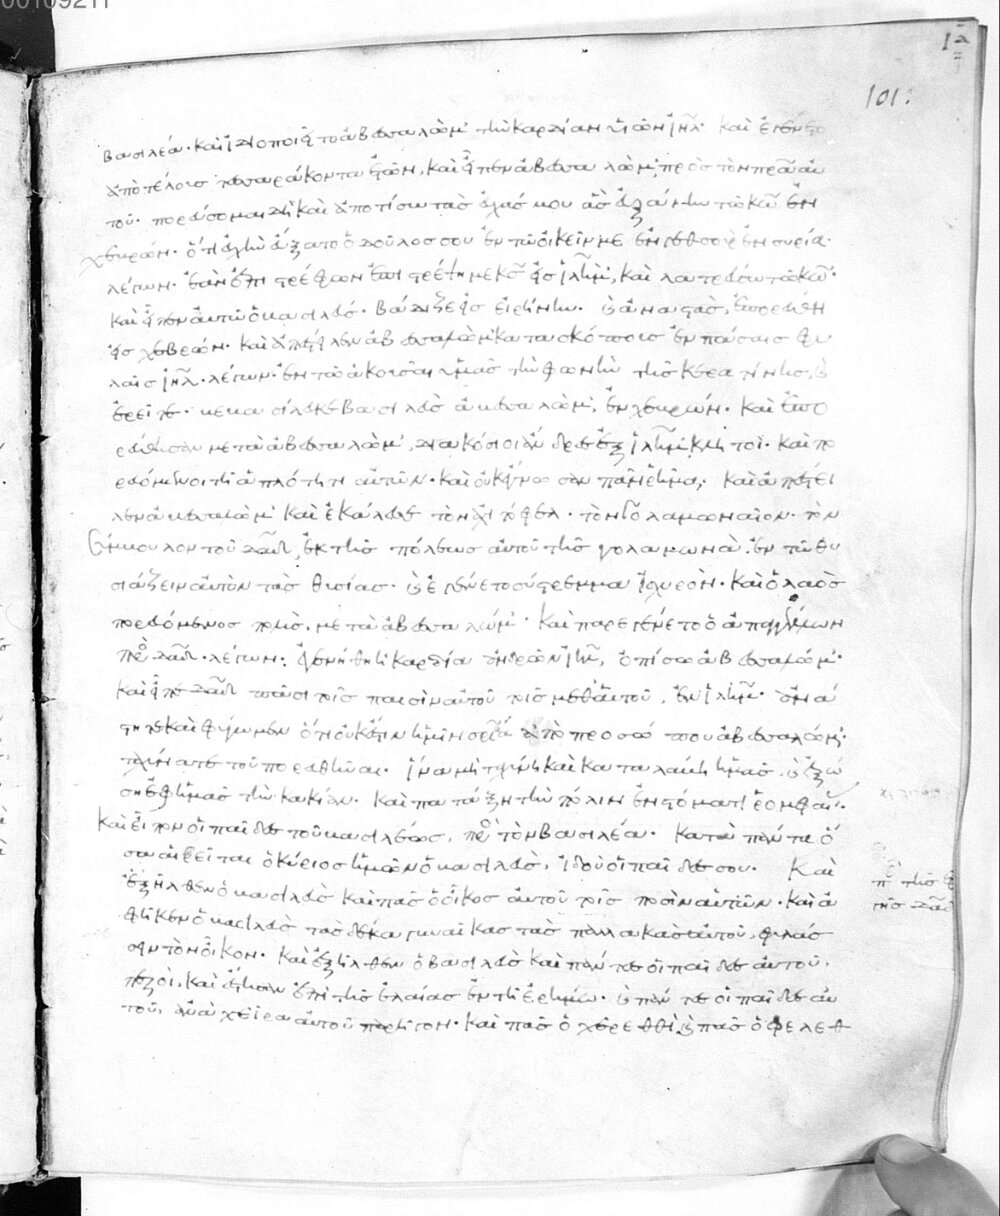 00109211
101:
βασιλέα· καὶ ἰδιοποιεῖτο ἀβεσσαλὼμ τὴν καρδίαν υἱῶν ἰηλ· καὶ ἐγένετο
ἀπὸ τέλους τεσσαράκοντα ἐτῶν, καὶ εἶπεν ἀβεσσαλὼμ πρὸς τὸν πρα αὐ
τοῦ· πορεύσομαι δὴ καὶ ἀποτίσω τὰς εὐχάς μου ἃς εὐξάμην τῶ κω ἐν
χεβρών· ὅτι εὐχὴν εὔξατο ὁ δοῦλος σου ἐν τῶ οἰκεῖν με ἐν συρία·
λέγων· ἐὰν ἐπιστρέφων ἐπιστρέψη με κς εἰς ἰλημ, καὶ λατρεύσω τῶ κω·
καὶ εἶπεν αὐτῶ ὁ βασιλεύς· βάδιζε εἰς εἰρήνην· καὶ ἀναστὰς, ἐπορεύθη
εἰς χεβρών· καὶ ἀπέστειλεν ἀβεσσαλὼμ κατασκόπους ἐν πάσαις φυ
λαῖς ἰηλ· λέγων· ἐν τῶ ἀκοῦσαι ὑμᾶς τὴν φωνὴν τῆς κερατίνης, καὶ
ἐρεῖτε· βεβασίλευκε βασιλεὺς ἀβεσσαλὼμ, ἐν χεβρών· καὶ ἐπο
ρεύθησαν μετὰ ἀβεσσαλὼμ, διακόσιοι ἄνδρες ἐξ ἰλημ κλητοί· καὶ πο
ρευόμενοι τῆ ἁπλότητι αὐτῶν· καὶ οὐκ ἔγνωσαν πᾶν ῥῆμα· καὶ ἀπέστει
λεν ἀβεσσαλὼμ καὶ ἐκάλεσε τὸν ἀχιτόφελ· τὸν γολαμωναῖον· τὸν
σύμβουλον τοῦ δαδ, ἐκ τῆς πόλεως αὐτοῦ τῆς γολαμωνὰ· ἐν τῶ θυ
σιάζειν αὐτὸν τὰς θυσίας· καὶ ἐγένετο σύστρεμμα ἰσχυρὸν· καὶ ὁ λαὸς
πορευόμενος πολὺς, μετὰ ἀβεσσαλώμ· καὶ παρεγένετο ὁ ἀπαγγέλλων
πρὸς δαδ· λέγων· ἐγενήθη ἡ καρδία ἀνδρῶν ἰηλ, ὀπίσω ἀβεσσαλώμ·
καὶ εἶπε δαδ πᾶσι τοῖς παισὶν αὐτοῦ τοῖς μεθ αὐτοῦ, ἐν ἰλημ· ἀνά
στητε καὶ φύγωμεν ὅτι οὐκ ἔστιν ἡμῖν σρια ἀπὸ προσώπου ἀβεσσαλώμ·
ταχύνατε τοῦ πορευθῆναι· ἵνα μὴ ταχύνη καὶ καταλάβη ἡμᾶς, καὶ ἐξώ
ση ἐφ ἡμᾶς τὴν κακίαν· καὶ πατάξη τὴν πόλιν ἐν στόματι ῥομφαίας·
καὶ εἶπον οἱ παῖδες τοῦ βασιλέως, πρὸς τὸν βασιλέα· κατὰ πάντα ὅ
σα αἱρεῖται ὁ κύριος ἡμῶν ὁ βασιλεὺς, ἰδοὺ οἱ παῖδες σου· Καὶ
ἐξῆλθεν ὁ βασιλεὺς καὶ πᾶς ὁ οἶκος αὐτοῦ τοῖς ποσὶν αὐτῶν· καὶ ἀ
φῆκεν ὁ βασιλεὺς τὰς δέκα γυναῖκας τὰς παλλακὰς αὐτοῦ, φυλάσ
σειν τὸν οἶκον· καὶ ἐξῆλθεν ὁ βασιλεὺς καὶ πάντες οἱ παῖδες αὐτοῦ,
πεζοί, καὶ ἔστησαν ἐπὶ τῆς ἐλαίας ἐν τῆ ἐρήμω· καὶ πάντες οἱ παῖδες αὐ
τοῦ, ἀνὰ χεῖρα αὐτοῦ παρῆγον· καὶ πᾶς ὁ χερεθθὶ, καὶ πᾶς ὁ φελεθ